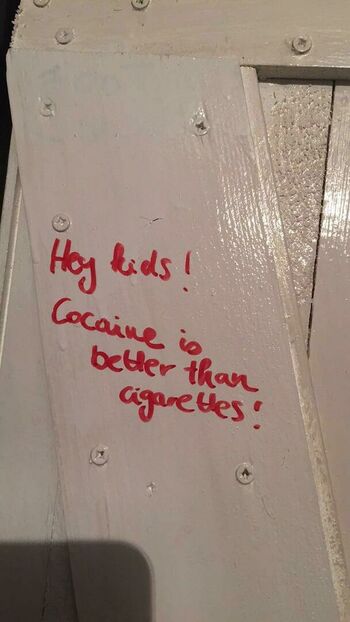 Hey kids!
Cocaine is
better than
cigarettes!